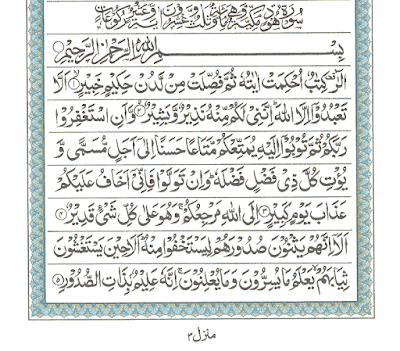 سُوْرَةُ هُوْدٍ مَكِّيَّةٌ وَّهِيَ مِائَةٌ وَّثَلٰثٌ وَّعِشْرُوْنَ اٰيَةً وَّعَشْرُ رُكُوْعَاتٍ
بِسْمِ اللّٰهِ الرَّحْمٰنِ الرَّحِيْمِ
الٓرٰ كِتٰبٌ اُحْكِمَتْ اٰيٰتُهٗ ثُمَّ فُصِّلَتْ مِنْ لَّدُنْ حَكِيْمٍ خَبِيْرٍ ۝۱ اَلَّا
تَعْبُدُوْٓا اِلَّا اللّٰهَ ؕ اِنَّنِيْ لَكُمْ مِّنْهُ نَذِيْرٌ وَّبَشِيْرٌ ۝۲ وَّاَنِ اسْتَغْفِرُوْا
رَبَّكُمْ ثُمَّ تُوْبُوْٓا اِلَيْهِ يُمَتِّعْكُمْ مَّتَاعًا حَسَنًا اِلٰٓى اَجَلٍ مُّسَمًّى وَّ
يُؤْتِ كُلَّ ذِيْ فَضْلٍ فَضْلَهٗ ؕ وَاِنْ تَوَلَّوْا فَاِنِّيْٓ اَخَافُ عَلَيْكُمْ
عَذَابَ يَوْمٍ كَبِيْرٍ ۝۳ اِلَى اللّٰهِ مَرْجِعُكُمْ ۚ وَهُوَ عَلٰى كُلِّ شَيْءٍ قَدِيْرٌ ۝۴
اَلَآ اِنَّهُمْ يَثْنُوْنَ صُدُوْرَهُمْ لِيَسْتَخْفُوْا مِنْهُ ؕ اَلَا حِيْنَ يَسْتَغْشُوْنَ
ثِيَابَهُمْ ۙ يَعْلَمُ مَا يُسِرُّوْنَ وَمَا يُعْلِنُوْنَ ۚ اِنَّهٗ عَلِيْمٌۢ بِذَاتِ الصُّدُوْرِ ۝۵
منزل ۳